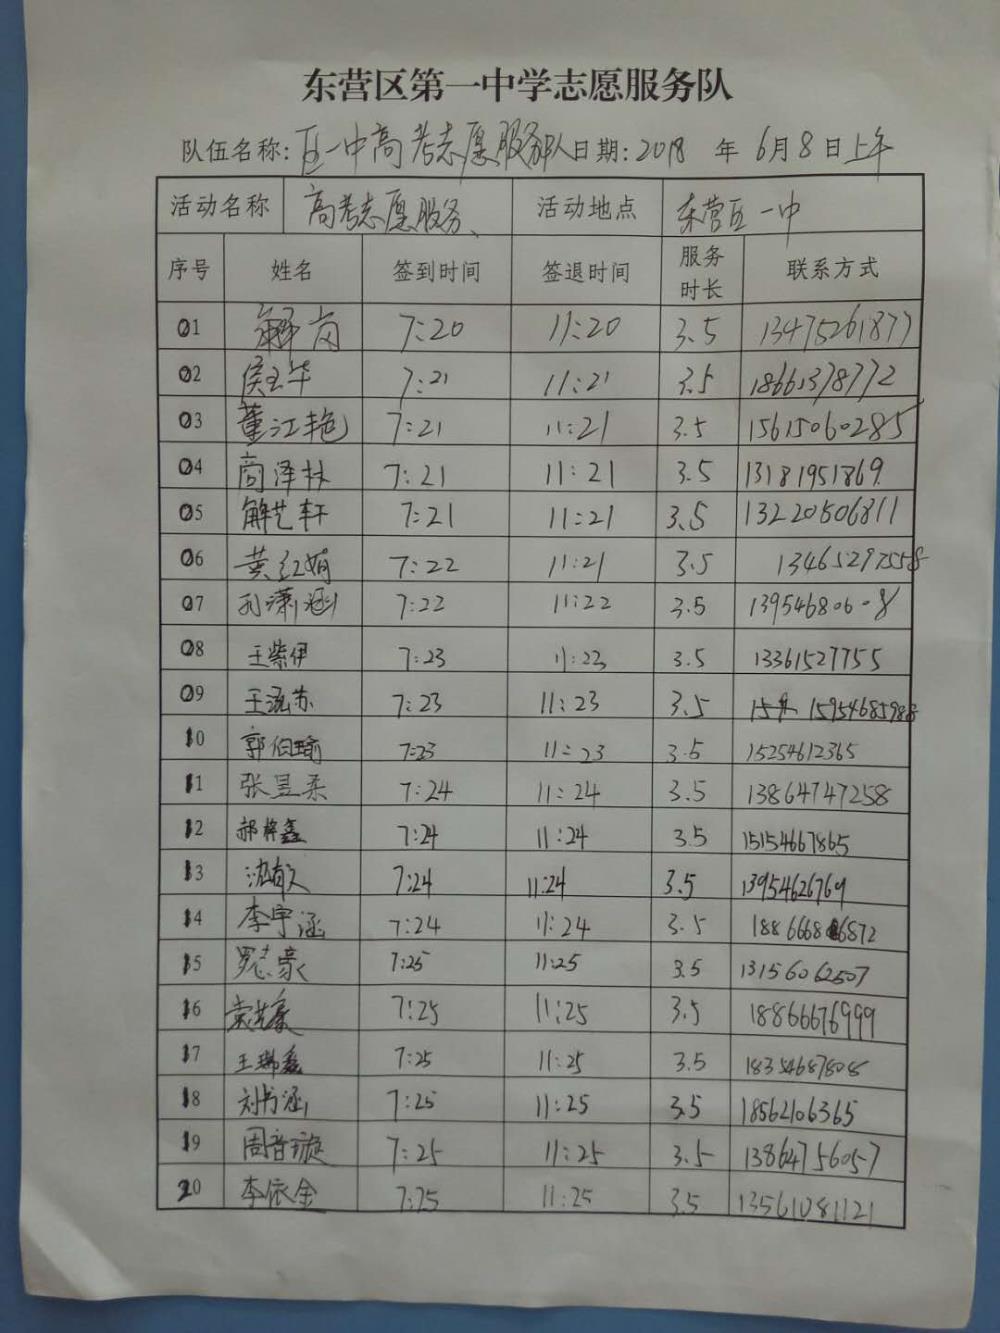 东营区第一中学志愿服务队
队伍名称：区一中高考志愿服务队 日期：2018 年 6月8日上午
活动名称 高考志愿服务、 活动地点 东营区一中
序号 姓名 签到时间 签退时间 服务时长 联系方式
01 解岗 7:20 11:20 3.5 13475261877
02 侯玉华 7:21 11:21 3.5 18661378772
03 董江艳 7:21 11:21 3.5 15615060285
04 商泽林 7:21 11:21 3.5 13181951869
05 解艺轩 7:21 11:21 3.5 13220506811
06 黄红娟 7:22 11:21 3.5 13465297558
07 孙潇涵 7:22 11:22 3.5
08 王紫伊 7:23 11:23 3.5 13361527755
09 王泓苏 7:23 11:23 3.5 15954685988
10 郭伯瑜 7:23 11:23 3.5 15254612365
11 张昱柔 7:24 11:24 3.5 13864747258
12 郝梓鑫 7:24 11:24 3.5 15154667865
13 7:24 11:24 3.5 13954626769
14 李宇涵 7:24 11:24 3.5
15 罗志豪 7:25 11:25 3.5 13156062507
16 7:25 11:25 3.5 18866676999
17 王瑞鑫 7:25 11:25 3.5 18354687808
18 刘书涵 7:25 11:25 3.5 18562106365
19 周音璇 7:25 11:25 3.5 13864756057
20 李依金 7:25 11:25 3.5 13561081121